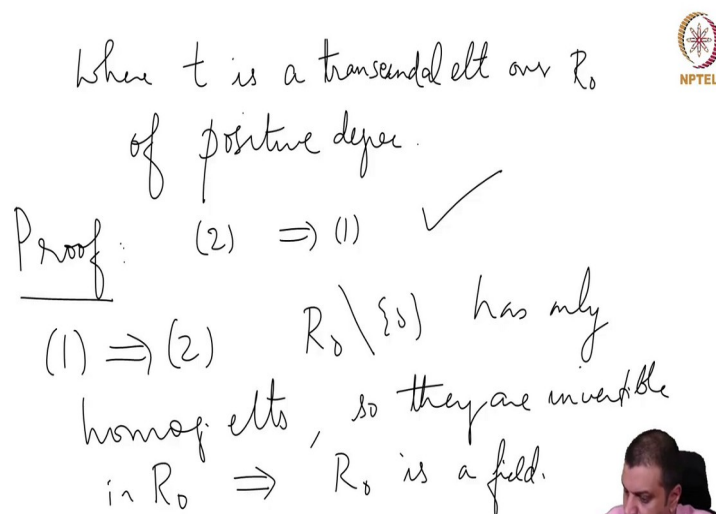 Where t is a transcendal elt over R₀
NPTEL
of positive degree.
Proof: (2) ⇒ (1) ✓
(1) ⇒ (2) R₀ \ {0} has only
homog. elts, so they are invertible
in R₀ ⇒ R₀ is a field.